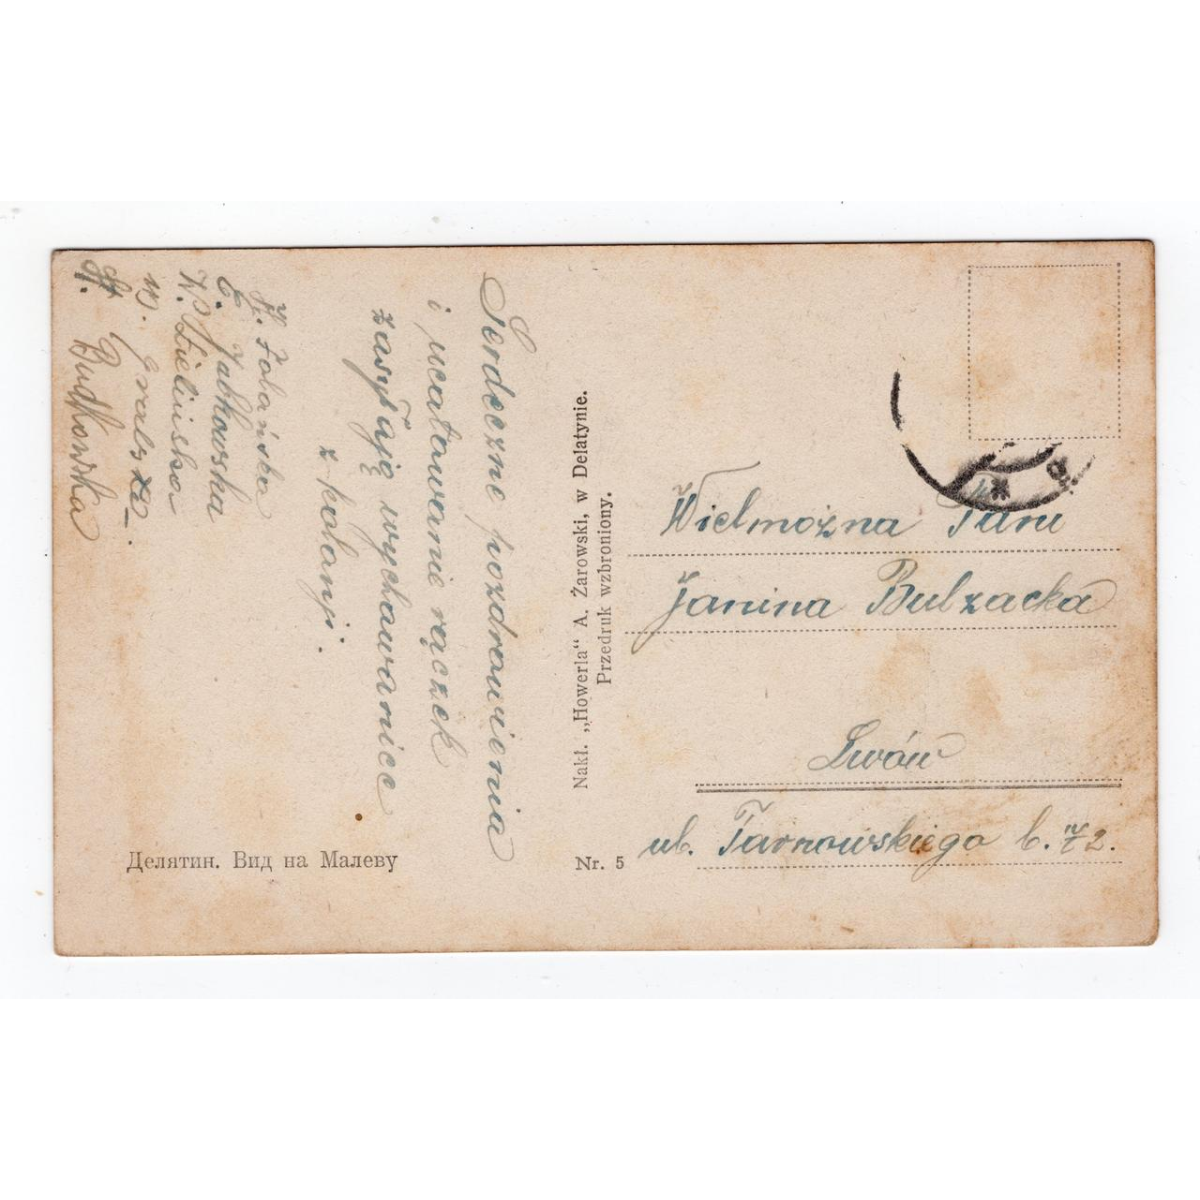 Serdeczne pozdrowienia
i ucałowanie rączek
zasyłają wychowanice
z kolonji.
Z. Jabłkowska
W. Zielińska
H. Budkowska
Nakł. „Howerla“ A. Żarowski, w Delatynie.
Przedruk wzbroniony.
Wielmożna Pani
Janina Bulzacka
Lwów
ul. Tarnowskiego l. 2.
Делятин. Вид на Малеву
Nr. 5